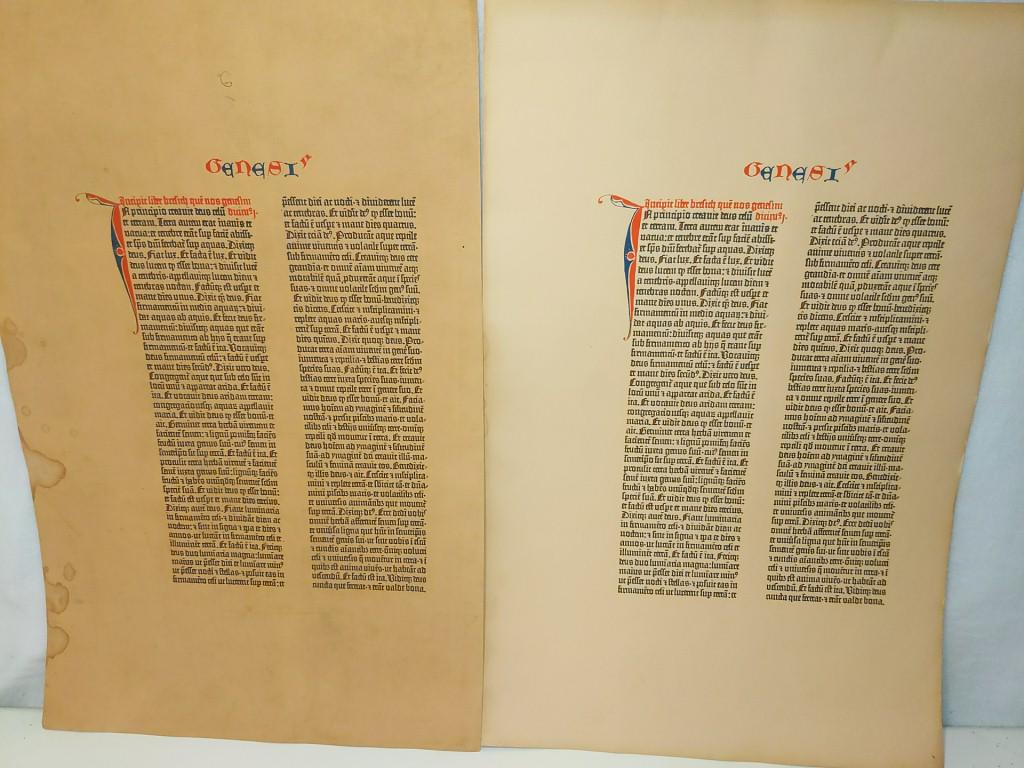 6
GENESIS
Incipit liber bresith quē nos genesim
In principio creauit deus celū dicimꝰ
et terram. Terra autem erat inanis et
vacua: et tenebre erāt sup faciē abissi:
et spūs dn̄i ferebat̄ sup aquas. Dixitqꝫ
deus. Fiat lux. Et facta ē lux. Et vidit
deus lucem ꝙ esset bona: ⁊ diuisit lucē
a tenebris·appellauitqꝫ lucem diem ⁊
tenebras noctem. Factūqꝫ est vespe et
mane dies unus. Dixit qꝫ deus. Fiat
firmamentū in medio aquaꝝ: ⁊ diui-
dat aquas ab aquis. Et fecit deus fir-
mamentū: diuisitqꝫ aquas que erāt
sub firmamento ab hijs q̄ erant sup
firmamentū: et factū ē ita. Vocauitqꝫ
deus firmamentū celū: ⁊ factū ē vespe
et mane dies secūdꝰ. Dixit vero deus.
Congregent̄ aque que sub celo sūt in
locū unū ⁊ appareat arida. Et factū ē
ita. Et vocauit deus aridam terram:
congregacionesqꝫ aquaꝝ appellauit
maria. Et vidit deus ꝙ esset bonū·et
ait. Germinet terra herbā virentem et
facientē semen: ⁊ lignū pomiferū faciēs
fructū iuxta genus suū·cuiꝰ semen in
semetipso sit sup terrā. Et factū ē ita. Et
protulit terra herbā virentē ⁊ facientē
semē iuxta genus suū: lignūqꝫ faciēs
fructū ⁊ habēs unūqdqꝫ sementē scdm
speciē suā. Et vidit deus ꝙ esset bonū:
et factū est vespe et mane dies tercius.
Dixitqꝫ autē deus. Fiant luminaria
in firmamēto celi·⁊ diuidāt diem ac
noctem: ⁊ sint in signa ⁊ tpa et dies ⁊
annos·ut luceāt in firmamēto celi et
illuminēt terrā. Et factū ē ita. Fecitqꝫ
deus duo lumīaria magna: lumīare
maius ut pesset diei et lumīare minꝰ
ut pesset nocti ⁊ stellas·⁊ posuit eas in
firmamēto celi ut lucerent sup terrā: et
pessent diei ac nocti·⁊ diuiderent lucē
ac tenebras. Et vidit dꝰ ꝙ esset bonū:
et factū ē vespe ⁊ mane dies quartus.
Dixit eciā dꝰ. Producāt aque reptile
anime viuentis ⁊ volatile super terrā:
sub firmamēto celi. Creauitqꝫ deus cete
grandia·et omnē aīam viuentē atqꝫ
motabilē quā pduxerāt aque ī spēs
suas·⁊ omne volatile scdm genꝰ suū.
Et vidit deus ꝙ esset bonū·benedixitqꝫ
eis dicens. Crescite ⁊ mltiplicamini·⁊
replete aquas maris·auesqꝫ mltipli-
cent̄ sup terrā. Et factū ē vespe ⁊ mane
dies quītus. Dixit quoqꝫ deus. Pro-
ducat terra aīam viuentē in genē suo·
iumenta ⁊ reptilia·⁊ bestias terre scdm
species suas. Factūqꝫ ē ita. Et fecit dꝰ
bestias terre iuxta species suas·iumen-
ta ⁊ omne reptile terre ī genere suo. Et
vidit deus ꝙ esset bonū·et ait. Facia-
mus hoīem ad ymaginē ⁊ silitudinē
nostrā·⁊ presit piscibꝫ maris·et vola-
tilibꝫ celi ⁊ bestijs uniūsqꝫ terre·omīqꝫ
reptili qd mouet̄ ī terra. Et creauit
deus hoīem ad ymaginē ⁊ silitudinē
suā·ad ymaginē dei creauit illū·ma-
sculū ⁊ feminā creauit eos. Benedixit-
qꝫ illis deus·⁊ ait. Crescite ⁊ mltiplica-
mini ⁊ replete terrā·et sbicite eā·⁊ dn̄a-
mini piscibꝫ maris·et volatilibꝫ celi·
et vniuersis animātibꝫ que mouent̄
sup terrā. Dixitqꝫ dꝰ. Ecce dedi vobis
omnē herbā afferentē semen sup terrā·
et vniūsa ligna que hn̄t in semetipsis
semētē genis sui·ut sint vobis ī escā
⁊ cunctis aīantibꝫ terre·om̄iqꝫ volucri
celi ⁊ vniuersis q̄ mouent̄ in terra·et ī
quibꝫ est anima viuēs·ut habeāt ad
vescendū. Et factū est ita. Viditqꝫ deus
cuncta que fecerat·⁊ erāt valde bona.
GENESIS
Incipit liber bresith quē nos genesim
In principio creauit deus celū dicimꝰ
et terram. Terra autem erat inanis et
vacua: et tenebre erāt sup faciē abissi:
et spūs dn̄i ferebat̄ sup aquas. Dixitqꝫ
deus. Fiat lux. Et facta ē lux. Et vidit
deus lucem ꝙ esset bona: ⁊ diuisit lucē
a tenebris·appellauitqꝫ lucem diem ⁊
tenebras noctem. Factūqꝫ est vespe et
mane dies unus. Dixit qꝫ deus. Fiat
firmamentū in medio aquaꝝ: ⁊ diui-
dat aquas ab aquis. Et fecit deus fir-
mamentū: diuisitqꝫ aquas que erāt
sub firmamento ab hijs q̄ erant sup
firmamentū: et factū ē ita. Vocauitqꝫ
deus firmamentū celū: ⁊ factū ē vespe
et mane dies secūdꝰ. Dixit vero deus.
Congregent̄ aque que sub celo sūt in
locū unū ⁊ appareat arida. Et factū ē
ita. Et vocauit deus aridam terram:
congregacionesqꝫ aquaꝝ appellauit
maria. Et vidit deus ꝙ esset bonū·et
ait. Germinet terra herbā virentem et
facientē semen: ⁊ lignū pomiferū faciēs
fructū iuxta genus suū·cuiꝰ semen in
semetipso sit sup terrā. Et factū ē ita. Et
protulit terra herbā virentē ⁊ facientē
semē iuxta genus suū: lignūqꝫ faciēs
fructū ⁊ habēs unūqdqꝫ sementē scdm
speciē suā. Et vidit deus ꝙ esset bonū:
et factū est vespe et mane dies tercius.
Dixitqꝫ autē deus. Fiant luminaria
in firmamēto celi·⁊ diuidāt diem ac
noctem: ⁊ sint in signa ⁊ tpa et dies ⁊
annos·ut luceāt in firmamēto celi et
illuminēt terrā. Et factū ē ita. Fecitqꝫ
deus duo lumīaria magna: lumīare
maius ut pesset diei et lumīare minꝰ
ut pesset nocti ⁊ stellas·⁊ posuit eas in
firmamēto celi ut lucerent sup terrā: et
pessent diei ac nocti·⁊ diuiderent lucē
ac tenebras. Et vidit dꝰ ꝙ esset bonū:
et factū ē vespe ⁊ mane dies quartus.
Dixit eciā dꝰ. Producāt aque reptile
anime viuentis ⁊ volatile super terrā:
sub firmamēto celi. Creauitqꝫ deus cete
grandia·et omnē aīam viuentē atqꝫ
motabilē quā pduxerāt aque ī spēs
suas·⁊ omne volatile scdm genꝰ suū.
Et vidit deus ꝙ esset bonū·benedixitqꝫ
eis dicens. Crescite ⁊ mltiplicamini·⁊
replete aquas maris·auesqꝫ mltipli-
cent̄ sup terrā. Et factū ē vespe ⁊ mane
dies quītus. Dixit quoqꝫ deus. Pro-
ducat terra aīam viuentē in genē suo·
iumenta ⁊ reptilia·⁊ bestias terre scdm
species suas. Factūqꝫ ē ita. Et fecit dꝰ
bestias terre iuxta species suas·iumen-
ta ⁊ omne reptile terre ī genere suo. Et
vidit deus ꝙ esset bonū·et ait. Facia-
mus hoīem ad ymaginē ⁊ silitudinē
nostrā·⁊ presit piscibꝫ maris·et vola-
tilibꝫ celi ⁊ bestijs uniūsqꝫ terre·omīqꝫ
reptili qd mouet̄ ī terra. Et creauit
deus hoīem ad ymaginē ⁊ silitudinē
suā·ad ymaginē dei creauit illū·ma-
sculū ⁊ feminā creauit eos. Benedixit-
qꝫ illis deus·⁊ ait. Crescite ⁊ mltiplica-
mini ⁊ replete terrā·et sbicite eā·⁊ dn̄a-
mini piscibꝫ maris·et volatilibꝫ celi·
et vniuersis animātibꝫ que mouent̄
sup terrā. Dixitqꝫ dꝰ. Ecce dedi vobis
omnē herbā afferentē semen sup terrā·
et vniūsa ligna que hn̄t in semetipsis
semētē genis sui·ut sint vobis ī escā
⁊ cunctis aīantibꝫ terre·om̄iqꝫ volucri
celi ⁊ vniuersis q̄ mouent̄ in terra·et ī
quibꝫ est anima viuēs·ut habeāt ad
vescendū. Et factū est ita. Viditqꝫ deus
cuncta que fecerat·⁊ erāt valde bona.